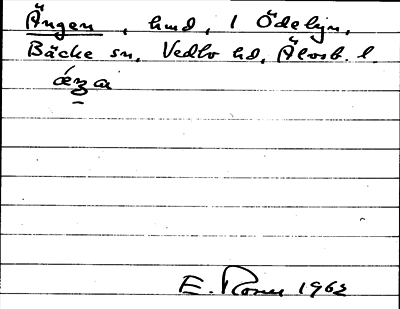 Ängen, hmd, 1 Ödelyn,
Bäcke sn, Vedbo hd, Älvsb. l.
E. 1962